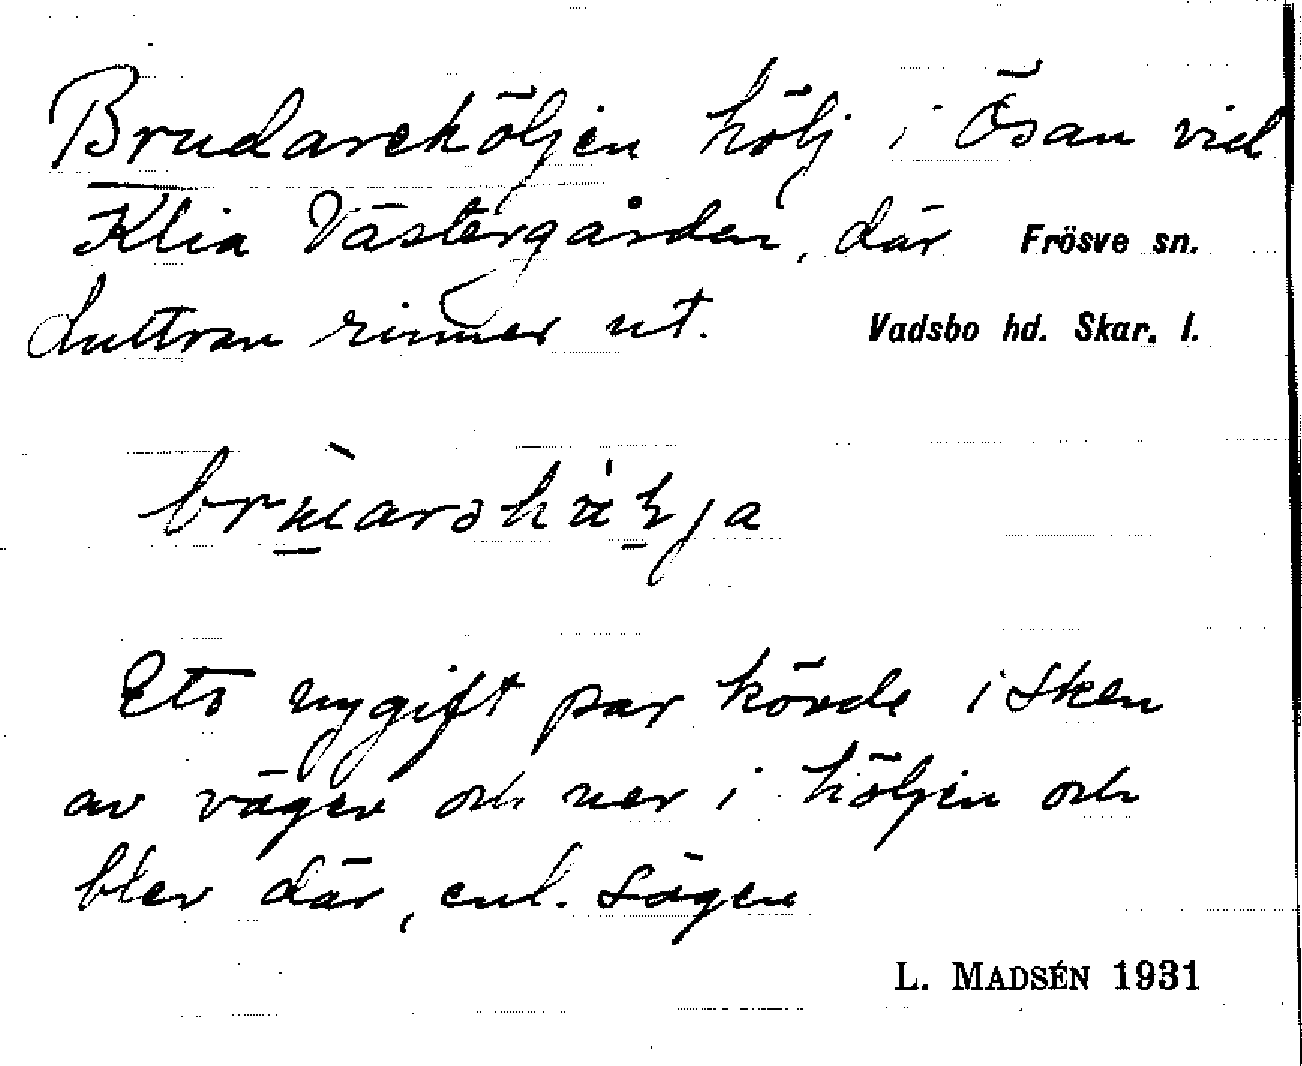 Brudareköljen hölj i Ösan vid
Klia Västergården, där Frösve sn.
Luttran rinner ut. Vadsbo hd. Skar. l.
Ett nygift par körde i sken
av vägen och ner i höljen och
blev där, enl. sägen
L. MADSÉN 1931